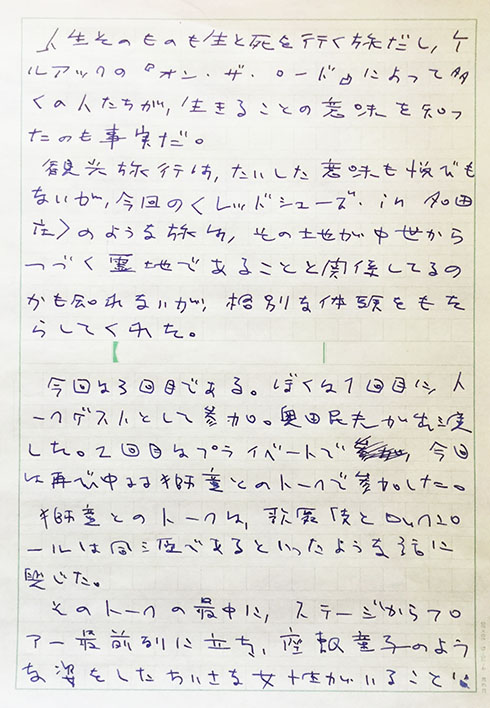 人生そのものも生と死を行く旅だし、ケ
ルアックの『オン・ザ・ロード』によって多
くの人たちが、生きることの意味を知っ
たのも事実だ。
観光旅行は、たいした意味も悦びも
ないが、今回の〈レッドシューズ・in 知田
庄〉のような旅は、その土地が中世から
つづく霊地であることと関係してるの
かも知れないが、格別な体験をもた
らしてくれた。
今回は3回目である。ぼくは1回目に、ト
ークゲストとして参加。奥田民夫が出演
した。2回目はプライベートで、今回
は再び中村獅童とのトークで参加した。
獅童とのトークは、歌舞伎とロックンロ
ールは同じ位であるといったような話に
興じた。
そのトークの最中に、ステージからフロ
アー最前列に立ち、座敷童子のよう
な姿をしたちいさな女性がいることに